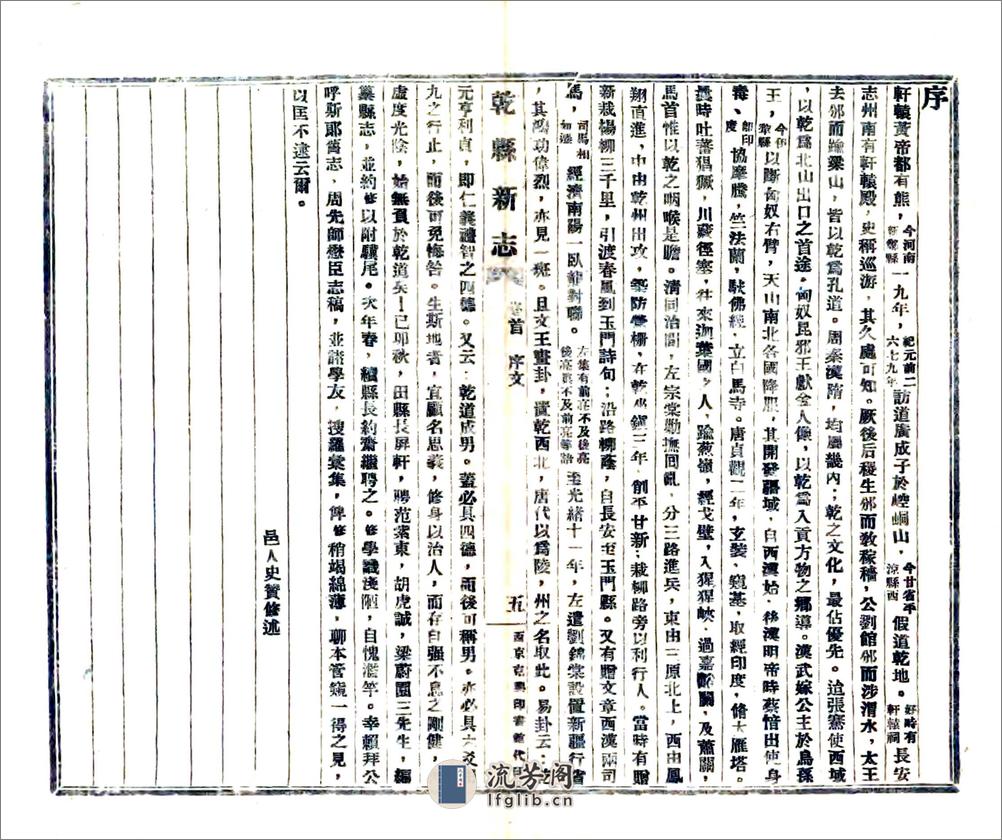 序
軒轅黃帝都有熊，今河南新鄭縣一九年，紀元前二六七九年訪道廣成子於崆峒山，今甘省平涼縣西假道乾地。好時有軒轅祠長安
志州南有軒轅殿，史稱巡游，其久處可知。厥後后稷生邠而敎稼穡，公劉館邠而涉渭水，太王
去邠而踰梁山，皆以乾爲孔道。周秦漢隋，均屬畿內；乾之文化，最佔優先。迨張騫使西域
，以乾爲北山出口之首途。匈奴昆邪王獻金人像，以乾爲入貢方物之鄉導。漢武嫁公主於烏孫
王，以斷匈奴右臂，天山南北各國降服，其開發疆域，自西漢始。後漢明帝時蔡愔出使身
毒、卽印度協摩騰，竺法蘭，馱佛經，立白馬寺。唐貞觀二年，玄奘、窺基，取經印度，脩大雁塔。
時吐蕃猖獗，川藏徑塞，往來迦葉國之人，踰葱嶺，經戈壁，入猩猩峽，過嘉峪關，及蕭關，
馬首惟以乾之咽喉是瞻。清同治間，左宗棠勦撫回亂，分三路進兵，東由三原北上，西由鳳
翔直進，中由乾州出攻，築防營柵，在乾坐鎭三年，創平甘新；栽柳路旁以利行人。當時有贈
新栽楊柳三千里，引渡春風到玉門詩句；沿路柳蔭，自長安屯玉門縣。又有贈文章西漢兩司
馬，司馬相如遷經濟南陽一臥龍對聯。左集有前亮不及後亮後亮眞不及前亮等語至光緒十一年，左遣劉錦棠設置新疆行省
，其鴻功偉烈，亦見一斑。且文王畫卦，置乾西北，唐代以爲陵，州之名取此。易卦云：
乾縣新志
卷首 序文
五
西京克興印書館代印
元亨利貞，即仁義禮智之四德。又云：乾道成男。蓋必具四德，而後可稱男。亦必具六爻
九之行止，而後可免悔咎。生斯地者，宜顧名思義，修身以治人，而存自强不息之剛健，
虛度光陰，始無負於乾道矣！已卯秋，田縣長屏軒，聘范紫東，胡虎誠，梁蔚園三先生，編
纂縣志，並約修以附驥尾。次年春，續縣長約齋繼聘之。修學識淺陋，自愧濫竽。幸賴拜公
呼斯郎舊志，周先師懋臣志稿，並諸學友，搜羅彙集，俾修稍竭綿薄，聊本管窺一得之見，
以匡不逮云爾。
邑人史贊修述
流芳閣
lfglib.cn